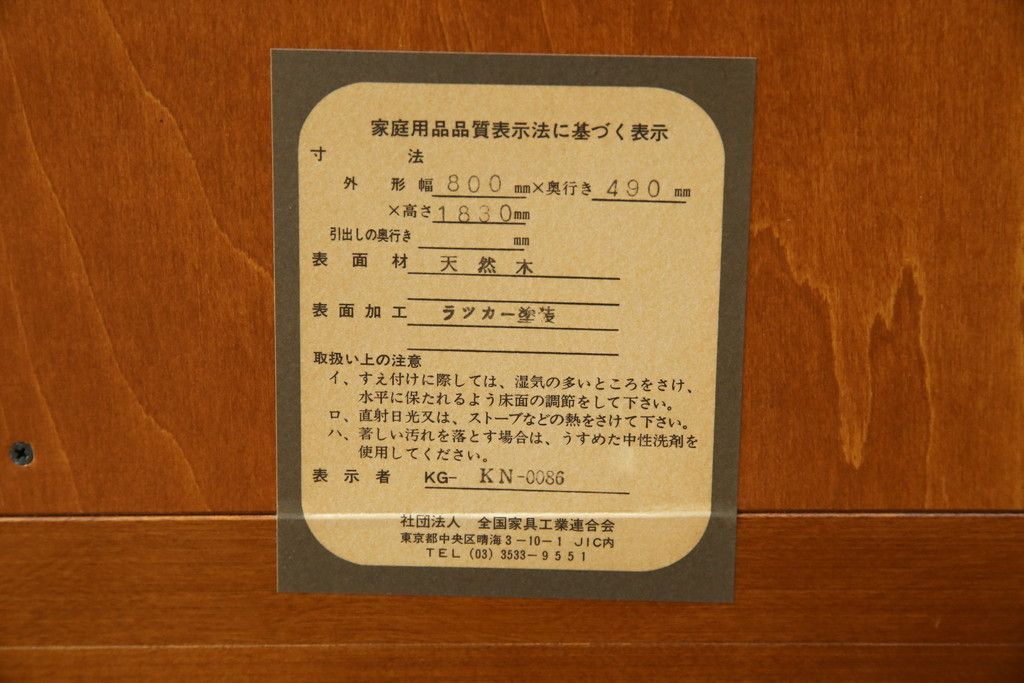 家庭用品品質表示法に基づく表示
寸法
外形幅 800 mm×奥行き 490 mm
×高さ 1830mm
引出しの奥行き mm
表面材 天然木
表面加工 ラツカー塗装
取扱い上の注意
イ、すえ付けに際しては、湿気の多いところをさけ、
水平に保たれるよう床面の調節をして下さい。
ロ、直射日光又は、ストーブなどの熱をさけて下さい。
ハ、著しい汚れを落とす場合は、うすめた中性洗剤を
使用してください。
表示者 KG- KN-0086
社団法人 全国家具工業連合会
東京都中央区晴海3-10-1 JIC内
TEL (03) 3533-9551